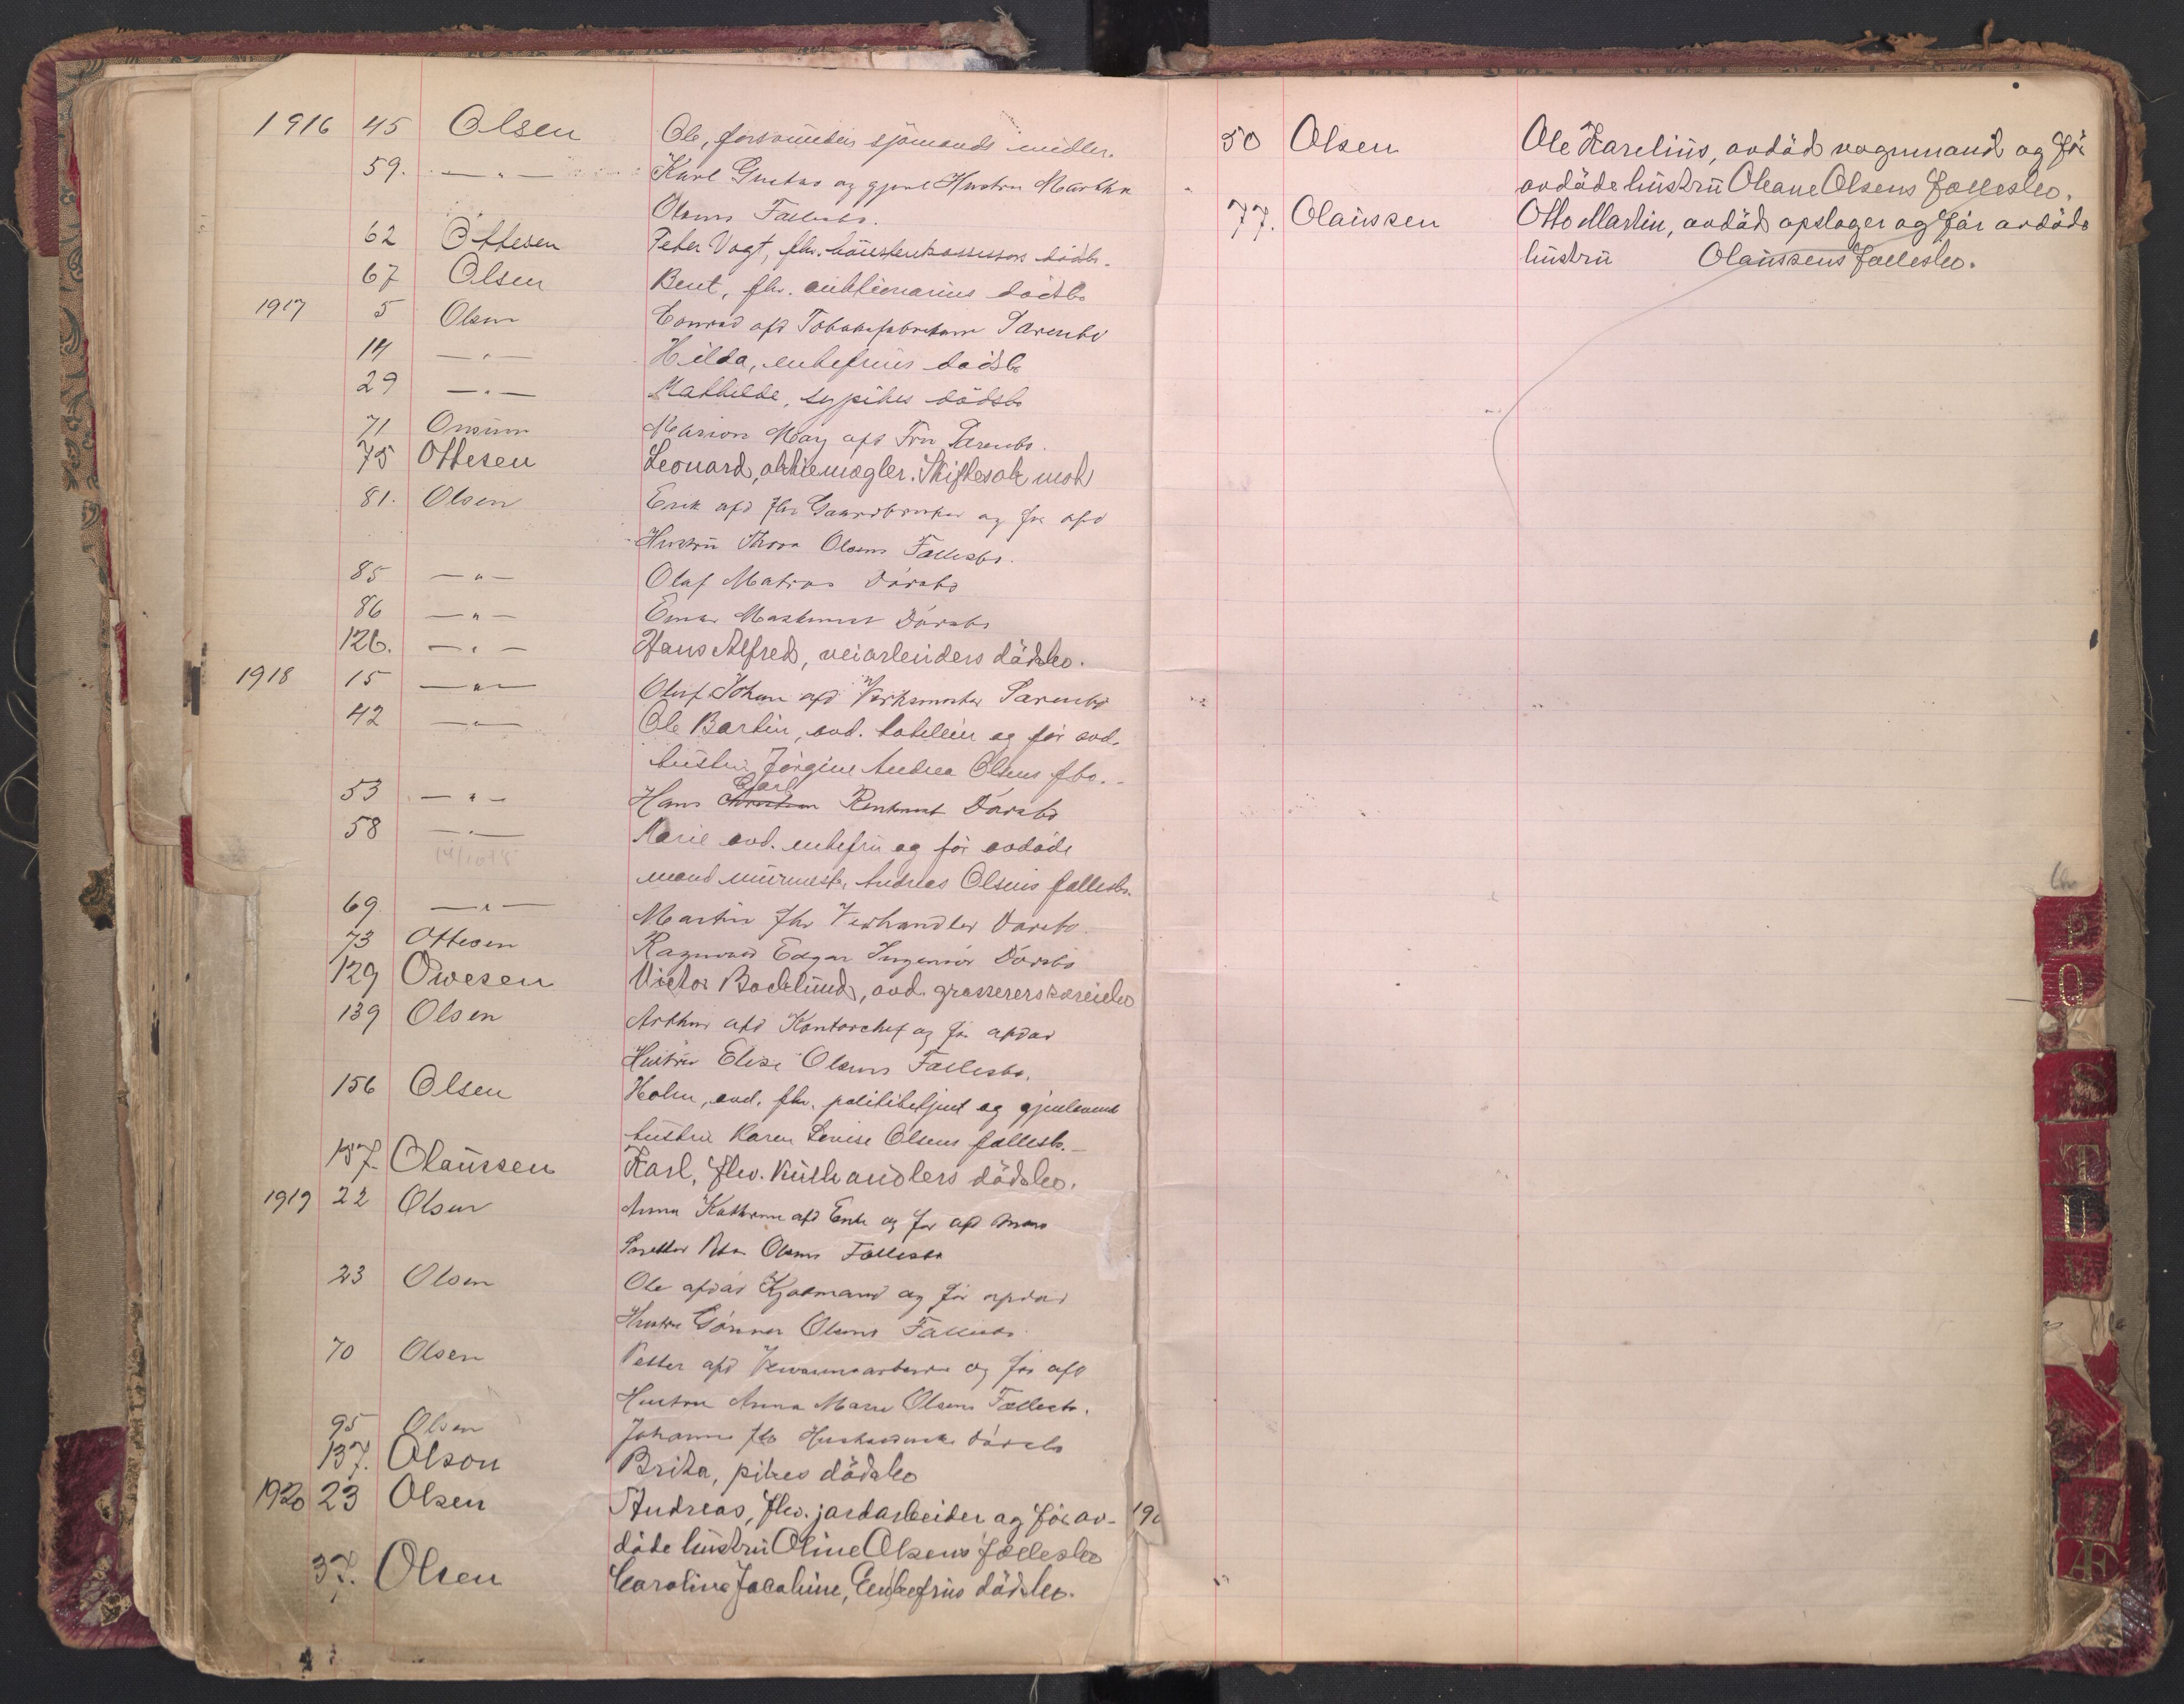 1916 45 Olsen Ole, forsvunden sjömands midler.
59. — " — Karl Gustav og gjenl Hustru Martha
Olsens Fællesbo.
62 Ottesen Peter Vogt, fhv. dödsbo.
67 Olsen Bent, fhv. auktionarius dödsbo
1917 5 Olsen Conrad afd Tobaksfabrikant Særenbo
14 — " — Hilda, enkefrues dödsbo
29 — " — Mathilde, sypikes dödsbo
71 Onsum Marion May afd Fru Særenbo.
75 Ottesen Leonard, aktiemægler. Skiftesak
81. Olsen Erik afd fhv Gaardbruker og før afd
Hustru Thora Olsens Fællesbo.
85 — " — Olaf Matros Dödsbo
86 — " — Einar Maskinist Dödsbo
126. — " — Hans Alfred, veiarbeiders dödsbo.
1918 15 — " — Oluf Johan afd Verksmester Særenbo
42 — " — Ole Bartin, avd. hotelleier og før avd.
hustru Jörgine Andrea Olsens fbo.
53 — " — Hans Christian Carl Rentenist Dödsbo
58 — " — Marie avd. enkefru og før avdöde
mand murmester Andreas Olsens fællesbo.
69 — " — Martin fhv Vedhandler Dödsbo
73 Ottesen Ragnvald Edgar Ingeniør Dödsbo
129 Owesen Victor Bodelund, avd. grosserers særeiebo
139 Olsen Arthur afd Kontorchef og før afdød
Hustru Elise Olsens Fællesbo.
156 Olsen Holm, avd. fhv. politibetjent og gjenlevende
hustru Karen Lovise Olsens fællesbo.
157. Olaussen Karl, fhv. kulhandlers dödsbo.
1919 22 Olsen Anna Kathrine afd Enke og før afd Mand
Peter Olsens Fællesbo
23 Olsen Ole afdød Kjølmand og før afdød
Hustru Gunner Olsens Fællesbo
70 Olsen Petter afd og før afd
Hustru Anna Marie Olsens Fællesbo.
95 Olsen Johanne fhv Dödsbo
137. Olson Brita, pikes dödsbo
1920 23 Olsen Andreas, fhv. jordarbeider og før av-
döde hustru Oline Olsens fællesbo
37. Olsen Caroline Jacobine, Enkefrus dödsbo.
50 Olsen Ole Karelius, avdöd vognmand og før
avdöde hustru Oleane Olsens fællesbo.
77. Olaussen Otto Martin, avdöd opslager og før avdöde
hustru Olaussens fællesbo.
P
Q
S
T
U
V
Z
Æ